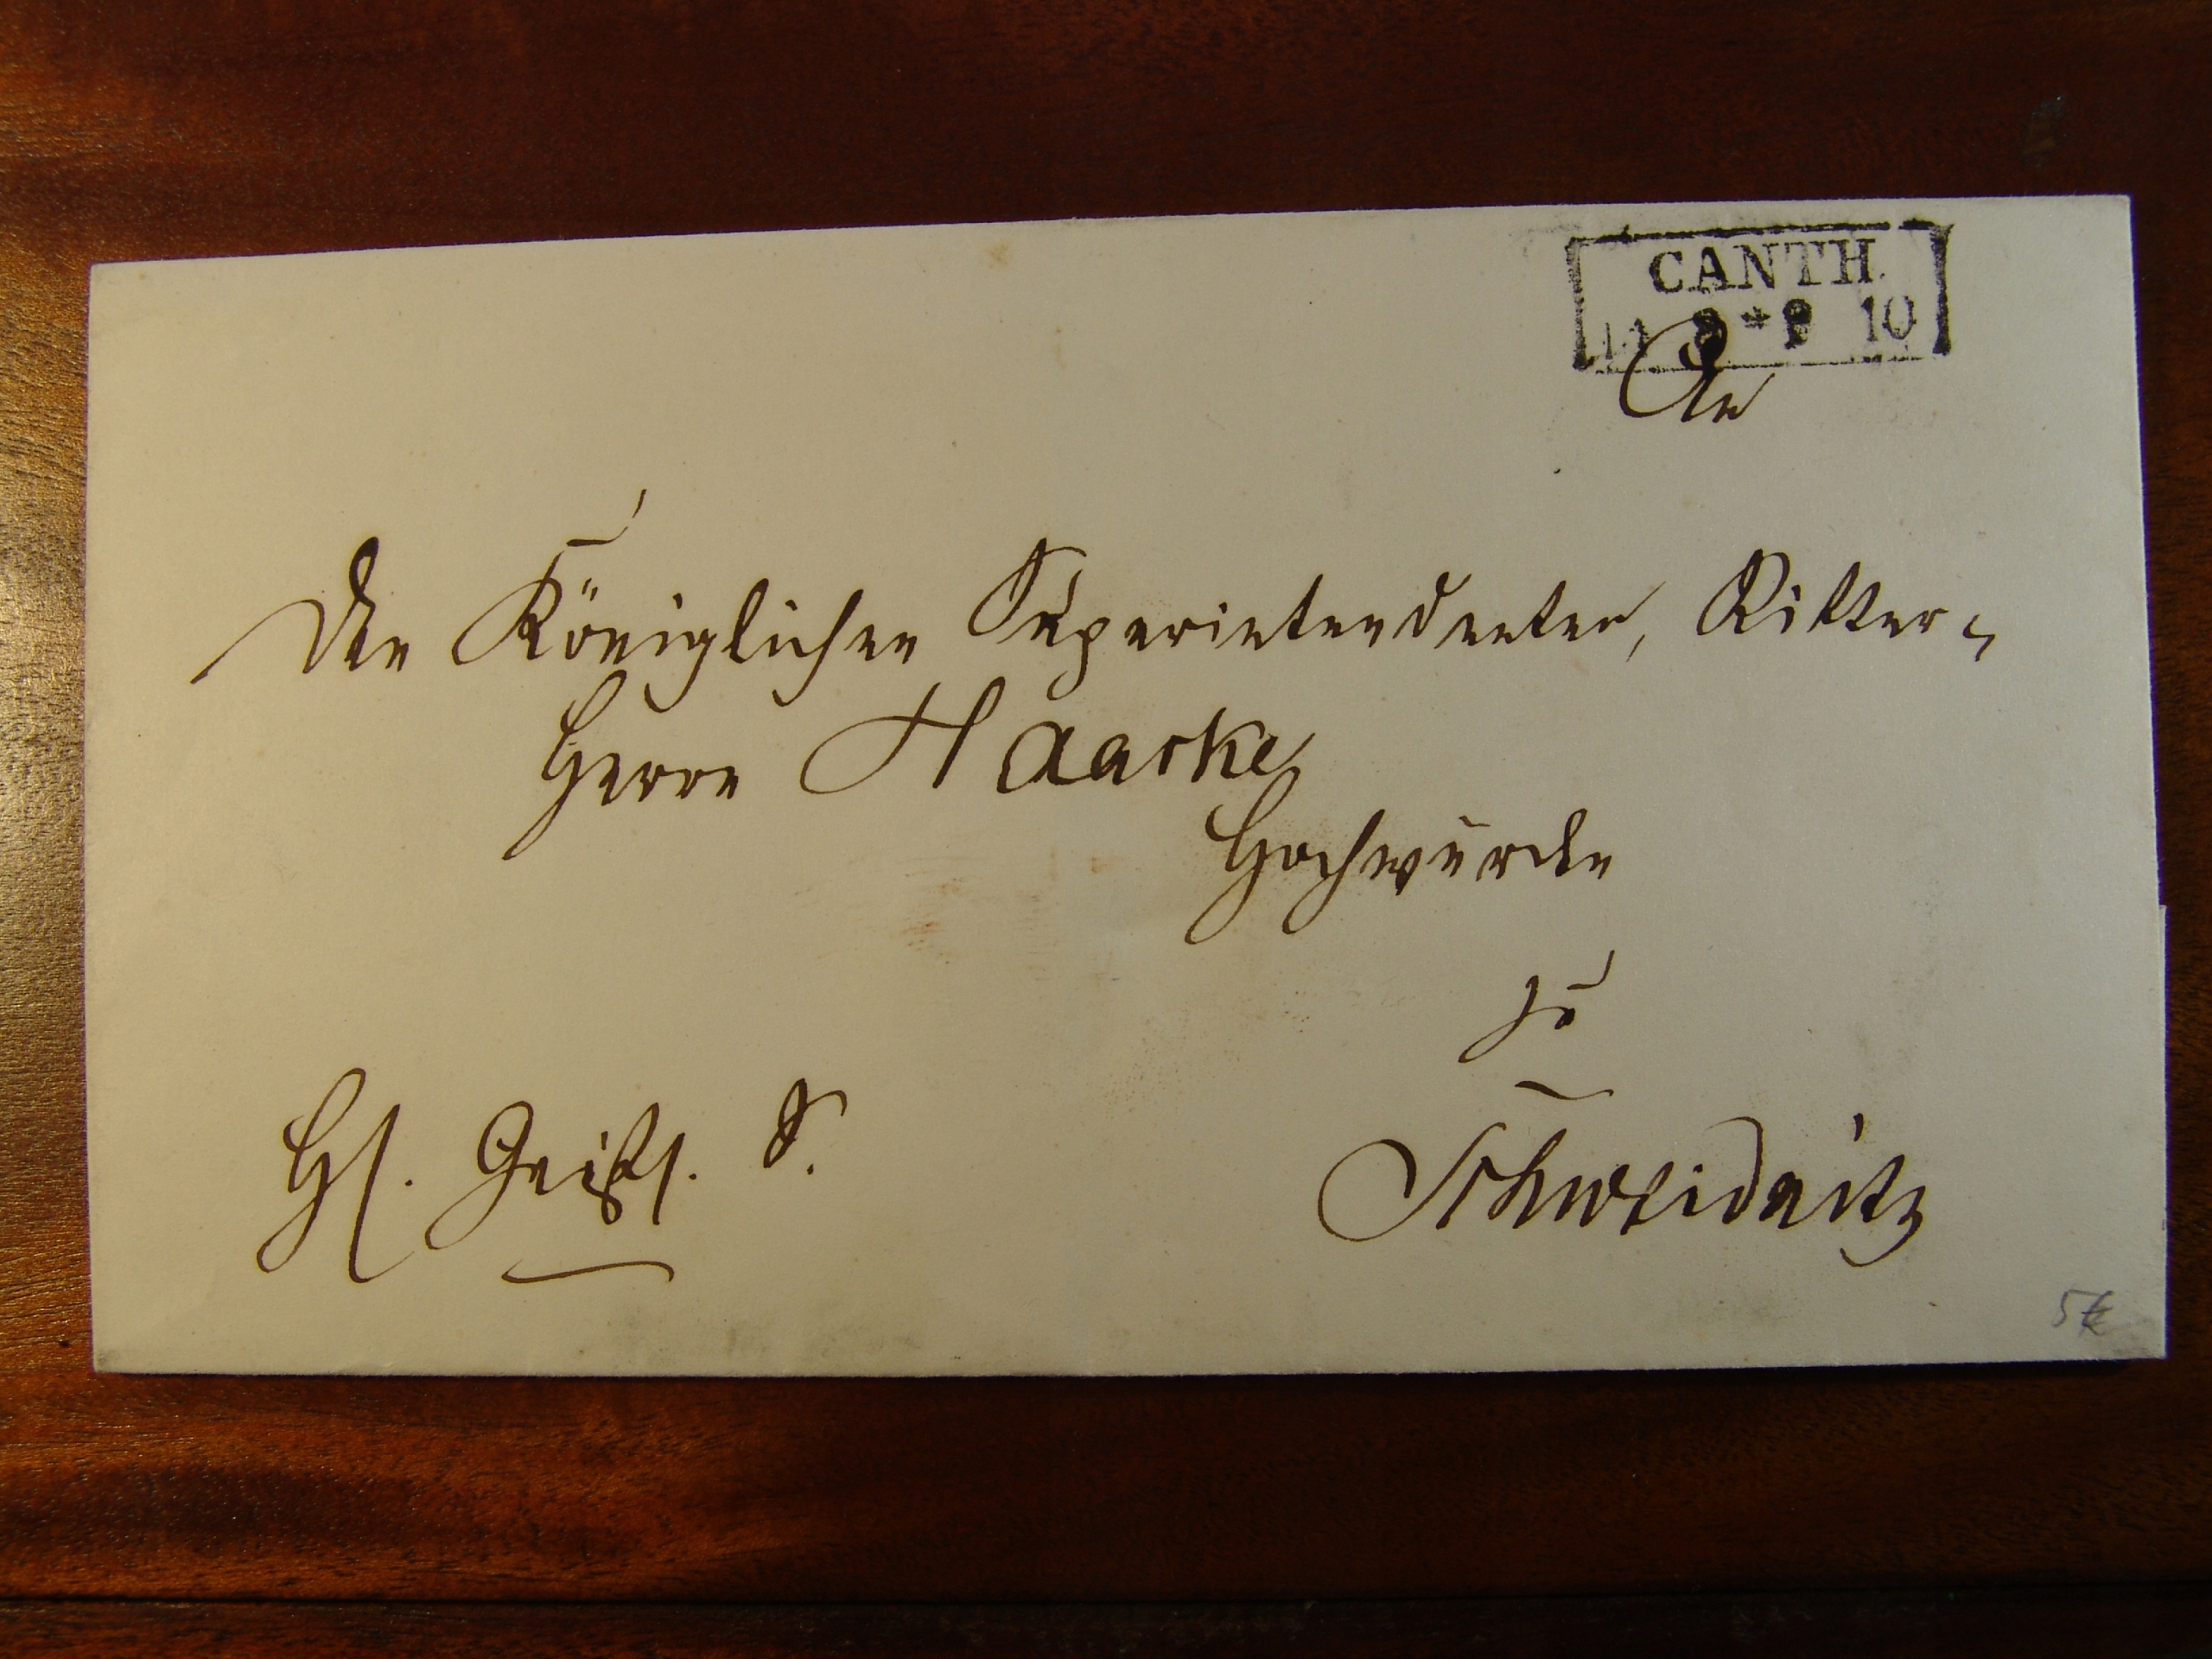 CANTH
11 8 * 9 10
An
den Königlichen Superintendenten, Ritter
Herrn Haacke
Hochwürden
zu
Hl. Geistl. S.
Schweidnitz
5€